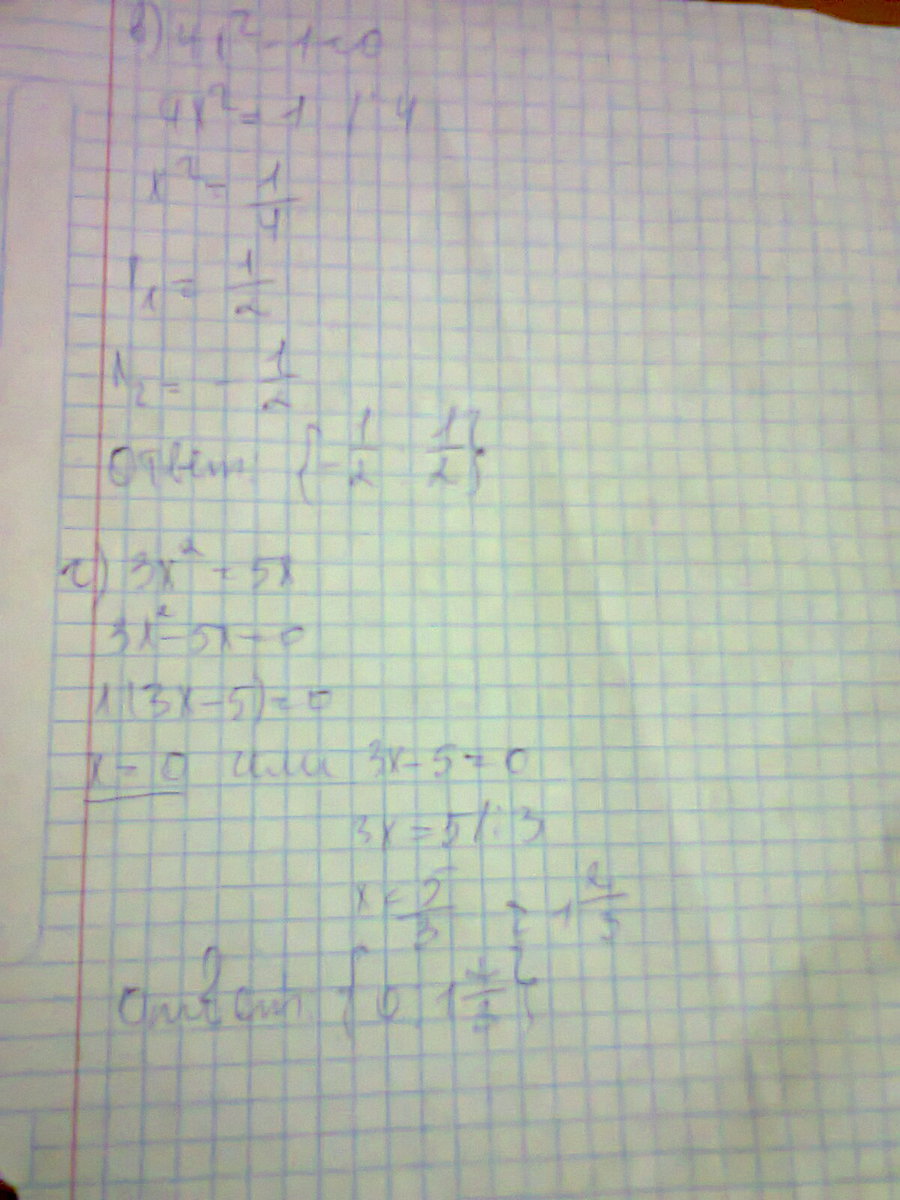 в) 4x² - 1 = 0
4x² = 1 / : 4
x² = 1/4
x₁ = 1/2
x₂ = - 1/2
Ответ: {-1/2 1/2}
г) 3x² = 5x
3x² - 5x = 0
x(3x - 5) = 0
x = 0 или 3x - 5 = 0
3x = 5 / : 3
x = 5/3 = 1 2/3
Ответ: {0 1 2/3}